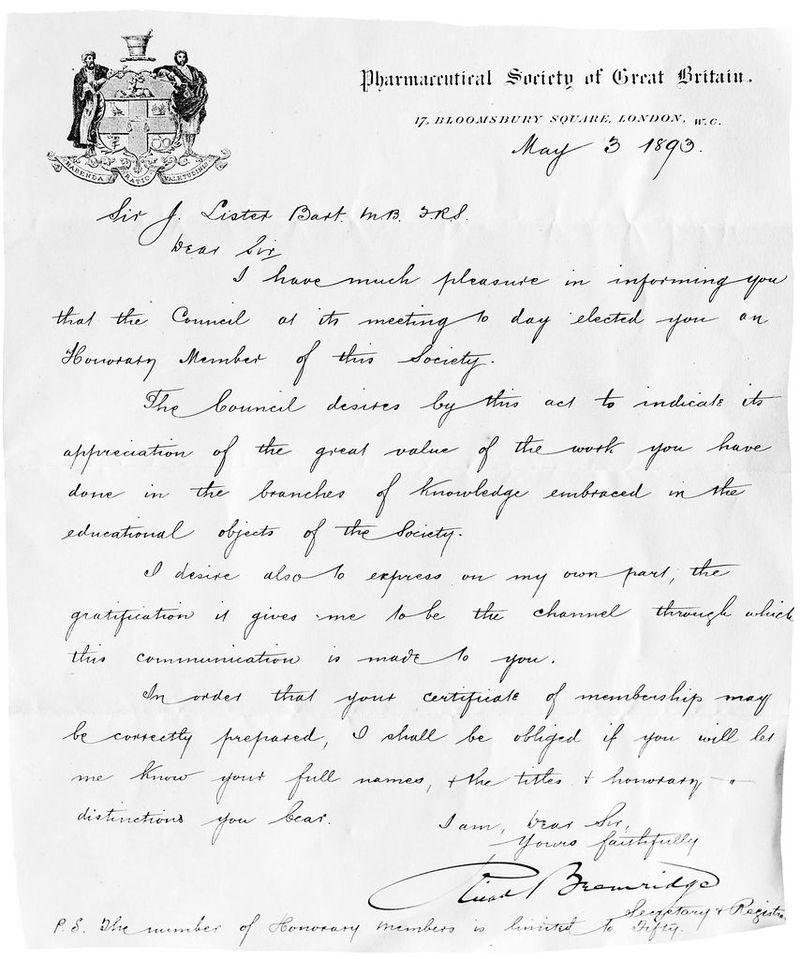 Pharmaceutical Society of Great Britain.
17, BLOOMSBURY SQUARE, LONDON, W.C.
HABENDA RATIO VALETUDINIS
May 3 1893.
Sir J. Lister Bart. M.B. F.R.S.
Dear Sir
I have much pleasure in informing you
that the Council at its meeting to day elected you an
Honorary Member of this Society.
The Council desires by this act to indicate its
appreciation of the great value of the work you have
done in the branches of knowledge embraced in the
educational objects of the Society.
I desire also to express on my own part, the
gratification it gives me to be the channel through which
this communication is made to you.
In order that your certificate of membership may
be correctly prepared, I shall be obliged if you will let
me know your full names, & the titles & honorary
distinctions you bear.
I am, Dear Sir,
Yours faithfully
Richd Bremridge
Secretary & Registrar
P.S. The number of Honorary Members is limited to Fifty.